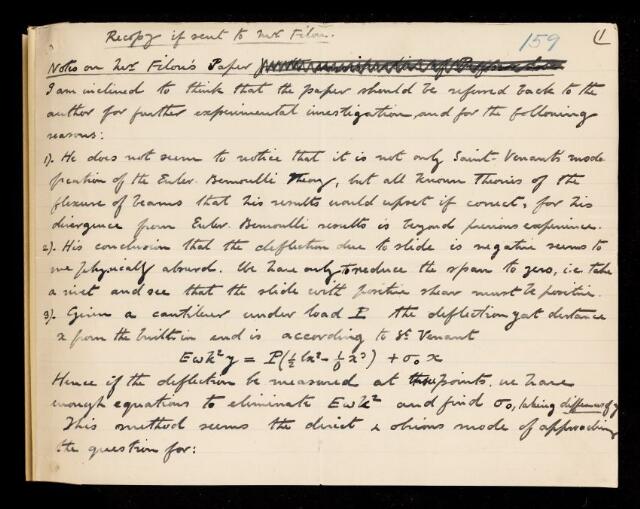 Recopy if sent to Mr Filon.
159
1
Notes on Mr Filon's Paper
I am inclined to think that the paper should be referred back to the
author for further experimental investigation, and for the following
reasons:
1). He does not seem to notice that it is not only Saint-Venant's modi
fication of the Euler-Bernoulli theory, but all known theories of the
flexure of beams that his results would upset if correct, for his
divergence from Euler-Bernoulli results is beyond previous experience.
2). His conclusion that the deflection due to slide is negative seems to
me physically absurd. We have only to reduce the span to zero, i.e. take
a rivet and see that the slide with positive shear must be positive.
3). Given a cantilever under load P the deflection y at distance
x from the built-in end is according to St Venant
Eωk²y = P(½lx² - ⅙x³) + σ₀x
Hence if the deflection be measured at three points, we have
enough equations to eliminate Eωk² and find σ₀, taking differences of y
This method seems the direct & obvious mode of approaching
the question for: